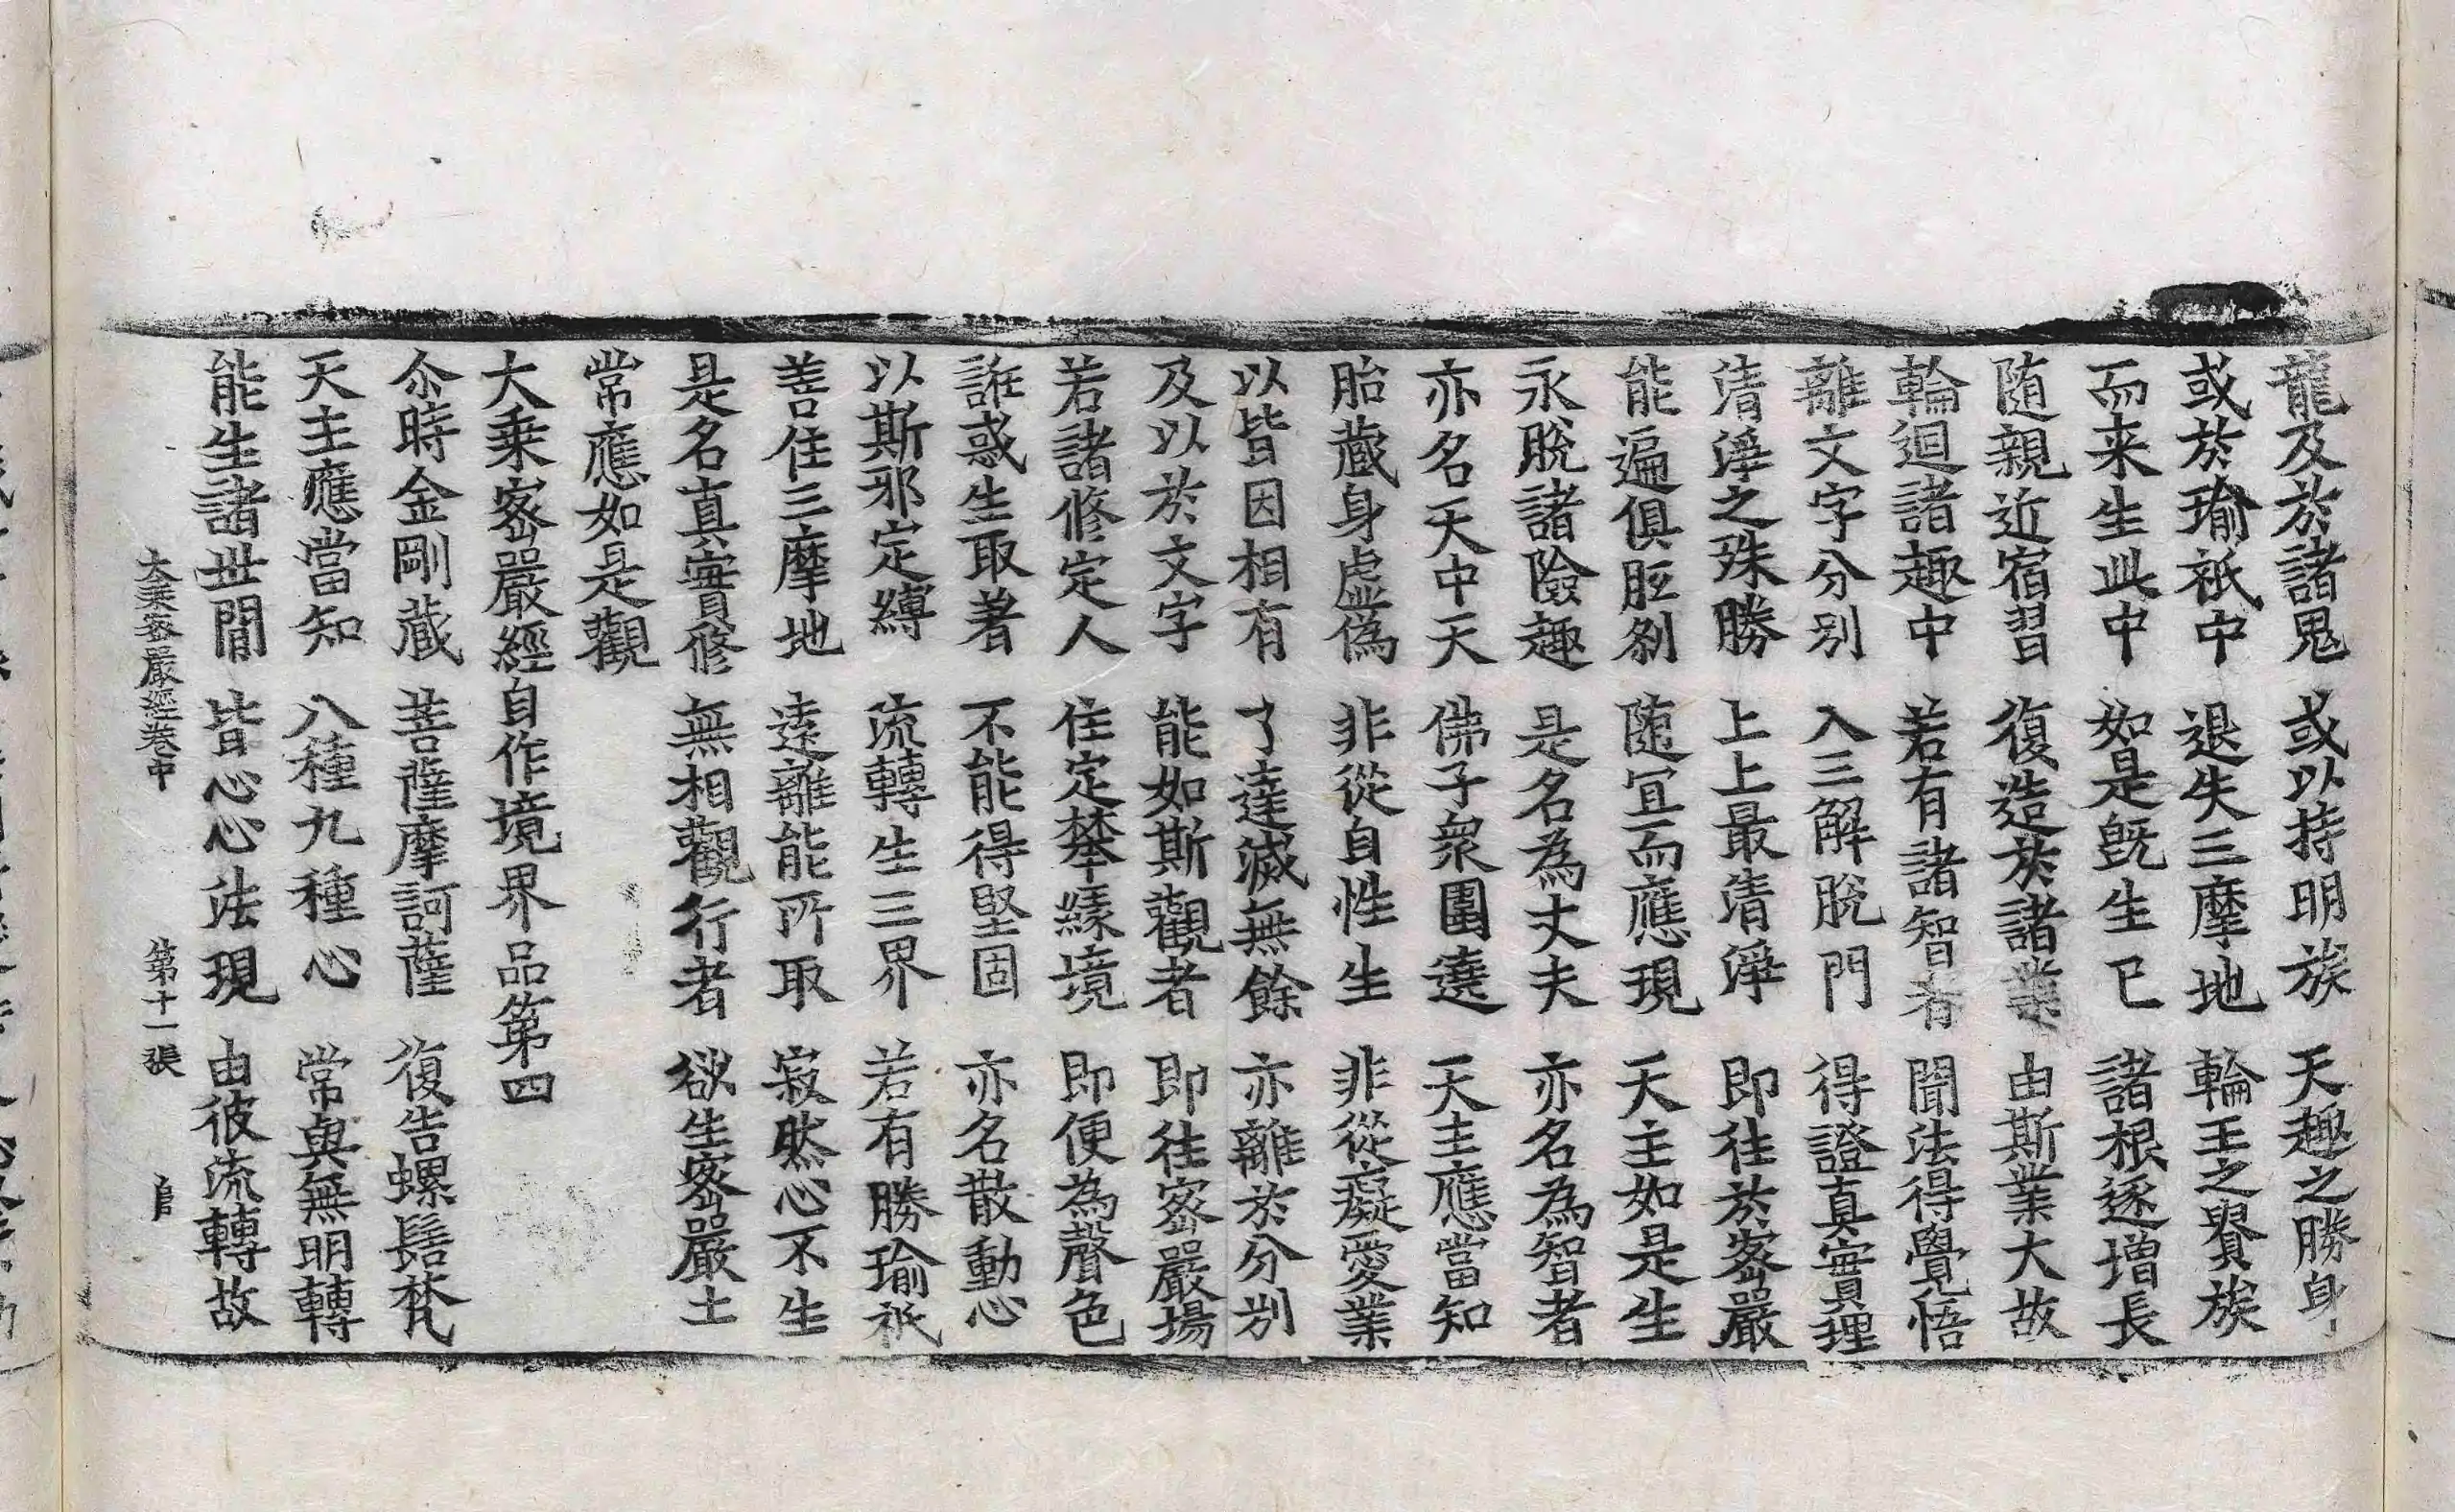 龍及於諸鬼　或以持明族　天趣之勝身
或於瑜祇中　退失三摩地　輪王之貴族
而来生此中　如是旣生已　諸根逐增長
随親近宿習　復造於諸業　由斯業大故
輪迴諸趣中　若有諸智者　聞法得覺悟
離文字分別　入三解脫門　得證真實理
清淨之殊勝　上上最清淨　即往於密嚴
能遍俱胝剎　随冝而應現　天主如是生
永脫諸險趣　是名為丈夫　亦名為智者
亦名天中天　佛子衆圍遶　天主應當知
胎藏身虛偽　非從自性生　非從癡愛業
以皆因相有　了達滅無餘　亦離於分别
及以於文字　能如斯觀者　即往密嚴場
若諸修定人　住定攀緣境　即便為聲色
誑惑生取著　不能得堅固　亦名散動心
以斯邪定縛　流轉生三界　若有勝瑜祇
善住三摩地　遠離能所取　寂然心不生
是名真實修　無相觀行者　欲生密嚴土
常應如是觀
大乘密嚴經自作境界品第四
尒時金剛藏　菩薩摩訶薩　復告螺髻梵
天主應當知　八種九種心　常與無明轉
能生諸世間　皆心心法現　由彼流轉故
大乘密嚴經卷中　第十一張